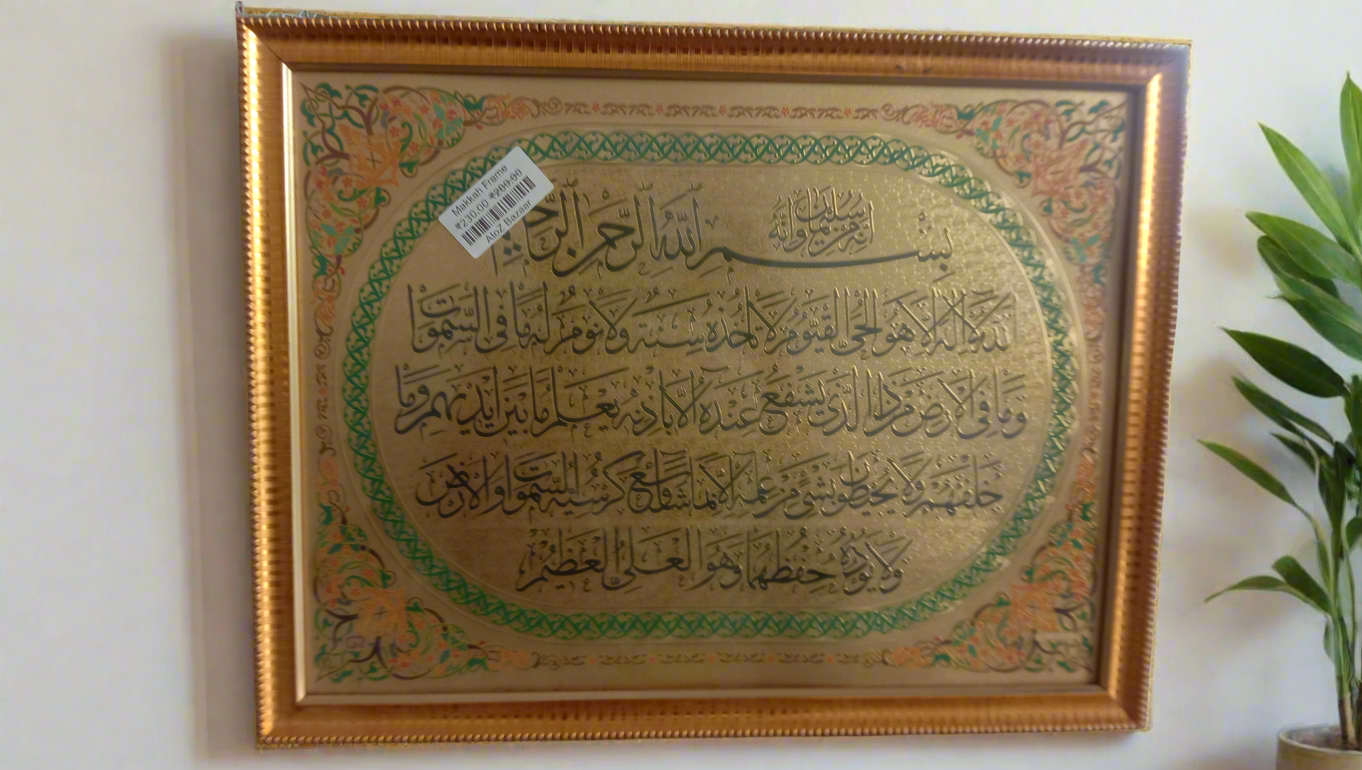 Makkah Frame
₹230.00 ₹260.00
AtoZ Bazaar
إنه من سليمان وإنه
بسم الله الرحمن الرحيم
الله لا إله إلا هو الحي القيوم لا تأخذه سنة ولا نوم له ما في السموات
وما في الأرض من ذا الذي يشفع عنده إلا بإذنه يعلم ما بين أيديهم وما
خلفهم ولا يحيطون بشيء من علمه إلا بما شاء وسع كرسيه السموات والأرض
ولا يؤده حفظهما وهو العلي العظيم